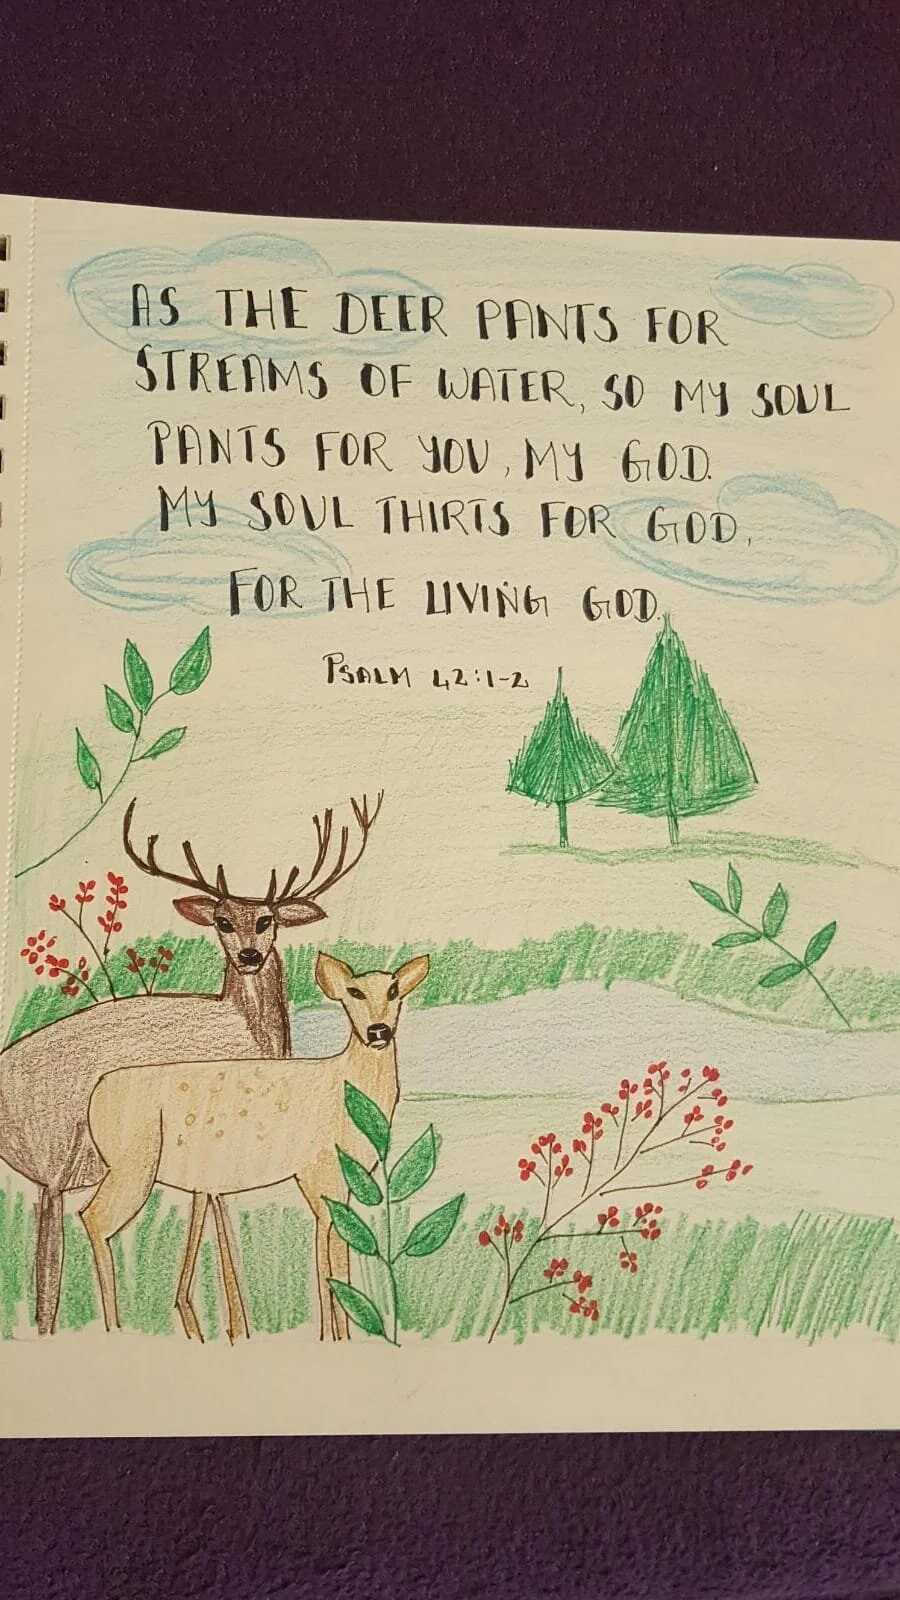 AS THE DEER PANTS FOR
STREAMS OF WATER, SO MY SOUL
PANTS FOR YOU, MY GOD.
MY SOUL THIRTS FOR GOD,
FOR THE LIVING GOD.
PSALM 42:1-2